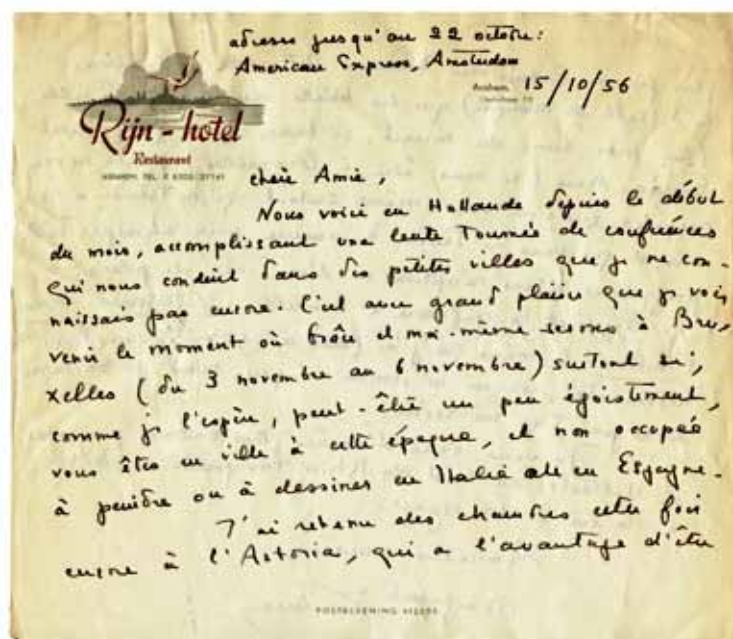 adresse jusqu'au 22 octobre:
American Express, Amsterdam
Arnhem, 15/10/56
Rijn-hotel
Restaurant
ARNHEM TEL. K 8300-27741
chère Amie,
Nous voici en Hollande depuis le début
du mois, accomplissant une lente tournée de conférences
qui nous conduit dans des petites villes que je ne con-
naissais pas encore. C'est avec grand plaisir que je vois
venir le moment où et moi-même serons à Bru-
xelles (du 3 novembre au 6 novembre) surtout si,
comme je l'espère, peut-être un peu égoïstement,
vous êtes en ville à cette époque, et non occupée
à peindre ou à dessiner en Italie ou en Espagne.
J'ai retenu des chambres cette fois
encore à l'Astoria, qui a l'avantage d'être
POSTREKENING